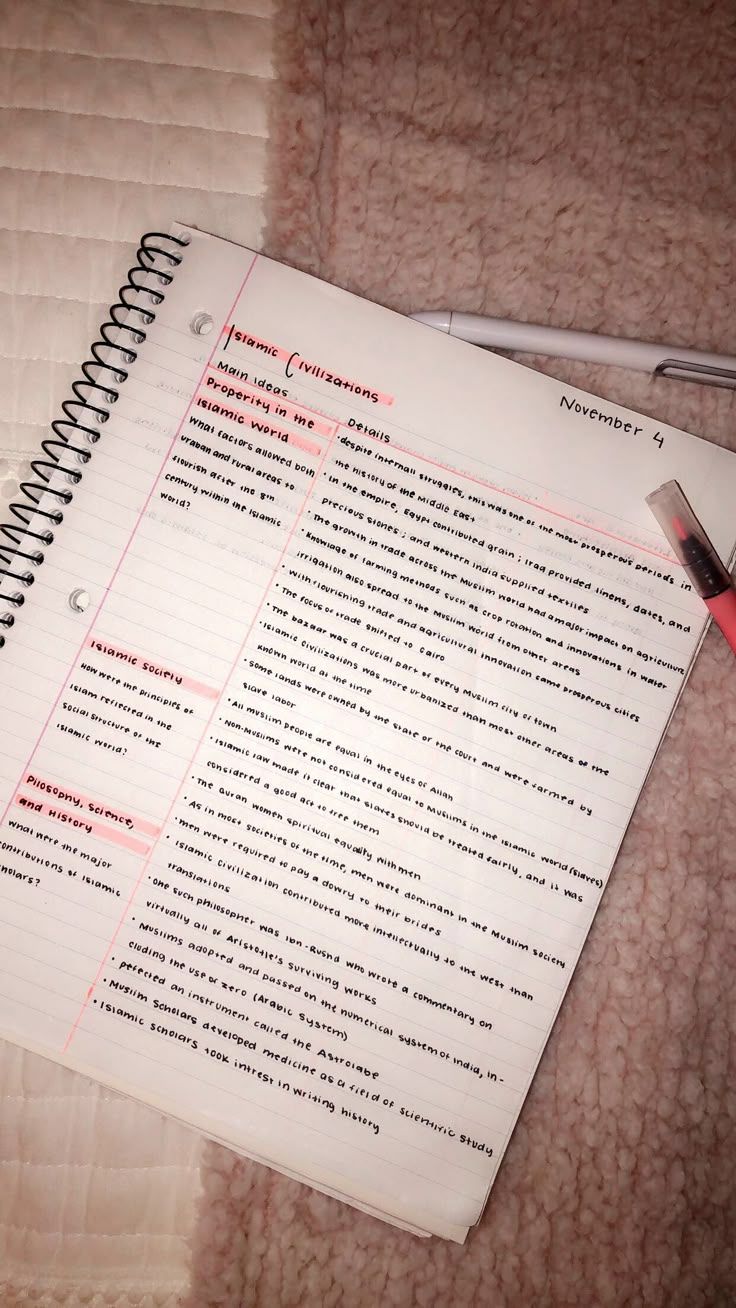 Islamic Civilizations
November 4
Main Ideas
Properity in the
Islamic World
What factors allowed both
uraban and rural areas to
flourish after the 8th
century within the Islamic
world?
Islamic Society
How were the principles of
Islam reflected in the
social structure of the
Islamic world?
Pilosophy, Science,
and History
What were the major
contributions of Islamic
holars?
Details
• despite internall struggles, this was one of the most prosperous periods in
the history of the Middle East
• In the empire, Egypt contributed grain ; Iraq provided linens, dates, and
precious stones ; and western India supplied textiles
• The growth in trade across the Muslim world had a major impact on agriculture
• Knowlage of farming methods such as crop rotation and innovations in water
irrigation also spread to the Muslim world from other areas
• With flourishing trade and agricultural innovation came prosperous cities
• The focus of trade shifted to Cairo
• The bazaar was a crucial part of every Muslim city of town
• Islamic civilizations was more urbanized than most other areas of the
known world at the time
• Some lands were owned by the state of the court and were farmed by
slave labor
• All muslim people are equal in the eyes of Allah
• Non-Muslims were not considered equal to Muslims in the Islamic world (slaves)
• Islamic law made it clear that slaves should be treated fairly, and it was
considered a good act to free them
• The Quran women spiritual equality with men
• As in most societies of the time, men were dominant in the Muslim society
• men were required to pay a dowry to their brides
• Islamic civilization contributed more intellectually to the west than
translations
• One such philosopher was Ibn-Rushd who wrote a commentary on
virtually all of Aristotle's surviving works
• Muslims adopted and passed on the numerical system of India, in-
cluding the use of zero (Arabic System)
• pefected an instrument called the Astrolabe
• Muslim Scholars developed medicine as a field of scientific study
• Islamic scholars took intrest in writing history